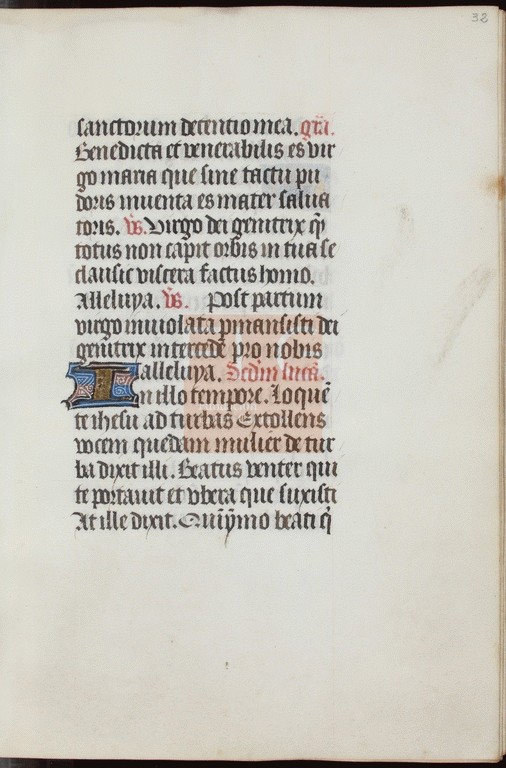 32
sanctorum decencio mea. gra.
Benedicta et venerabilis es vir
go maria que sine tactu pu
doris inuenta es mater salua
toris. vs. Virgo dei genitrix q̄
totus non capit orbis in tua se
clausit viscera factus homo.
Alleluya. vs. Post partum
virgo inuiolata pmansisti dei
genitrix intercede pro nobis
alleluya. Scdm lucā.
In illo tempore. Loquē
te ihesu ad turbas Extollens
vocem quedam mulier de tur
ba dixit illi. Beatus venter qui
te portauit et vbera que suxisti
At ille dixit. Quīymo beati q̄